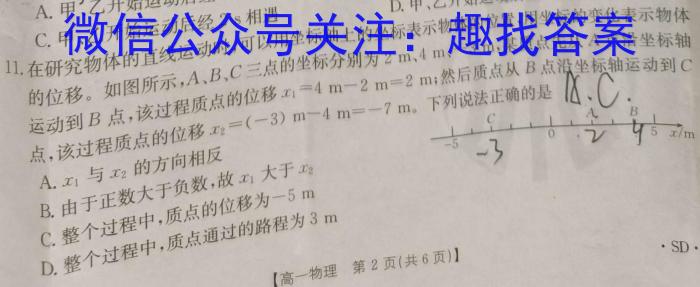 A. 甲、乙开始运动后
C. 甲
开始运动后经
s 相遇
D. 甲、乙
微信公众号关注：趣找答案
11. 在研究物体的直线运动
可以用坐标轴上的坐标表示物
坐标的变化表示物体
的位移。如图所示，A、B、C三点的坐标分别为2 m、4 m
沿坐标轴
运动到B点，该过程质点的位移x₁=4 m－2 m=2 m；然后质点从B点沿坐标轴运动到C
点，该过程质点的位移x₂=(－3) m－4 m=－7 m。下列说法正确的是
A.C.
A. x₁与x₂的方向相反
B. 由于正数大于负数，故x₁大于x₂
C. 整个过程中，质点的位移为－5 m
D. 整个过程中，质点通过的路程为3 m
C A B
-5 0 5 x/m
-3 2 4
【高一物理 第2页(共6页)】
·SD·